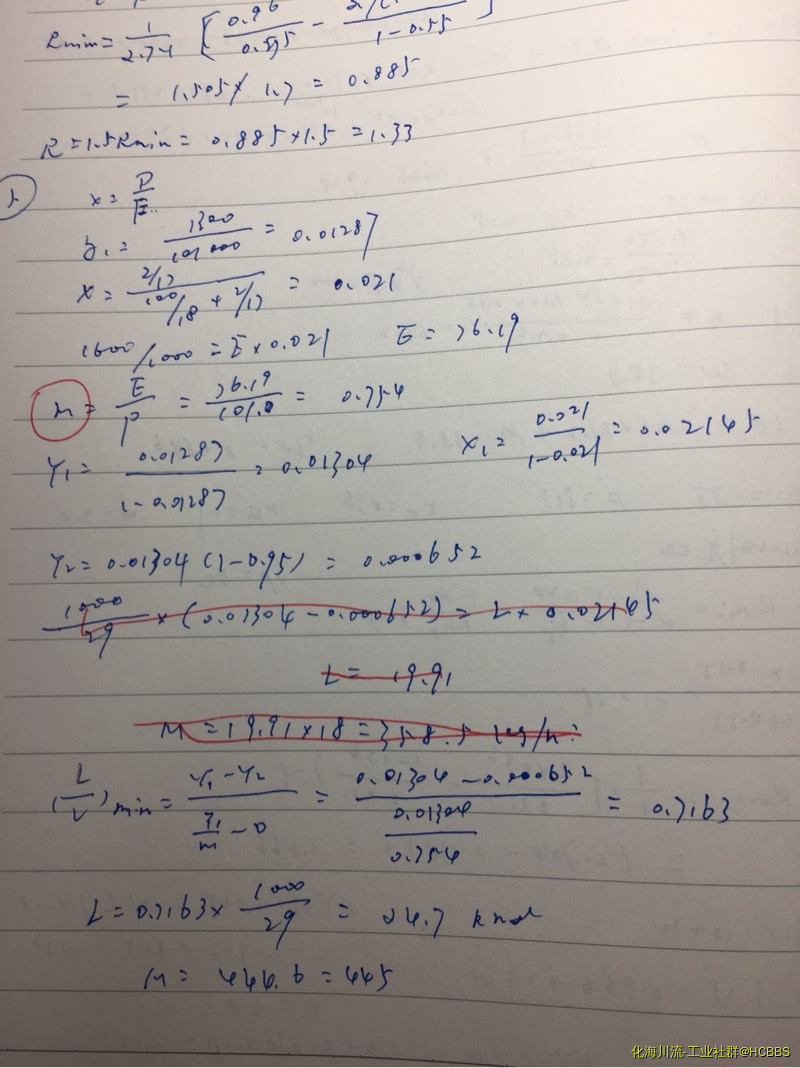 Rmin = 1/2.74 [ 0.96/0.595 - /1-0.55 ]
= 1.505/1.7 = 0.885
R = 1.5Rmin = 0.885×1.5 = 1.33
2) x = P/E
y₁ = 1300/101000 = 0.01287
x = (2/17)/(100/18 + 2/17) = 0.021
1600/1000 = E × 0.021 E = 76.19
m = E/P = 76.19/101.0 = 0.754
Y₁ = 0.01287/(1-0.01287) = 0.01304 X₁ = 0.021/(1-0.021) = 0.02145
Y₂ = 0.01304 (1-0.95) = 0.000652
1000/29 × (0.01304 - 0.000652) = L × 0.02145
L = 19.91
M = 19.91×18 = 358.5 kg/h
(L/V)min = (Y₁-Y₂)/(Y₁/m - 0) = (0.01304 - 0.000652)/(0.01304/0.754) = 0.7163
L = 0.7163 × 1000/29 = 24.7 kmol
M = 444.6 = 445
化海川流-工业社群@HCBBS